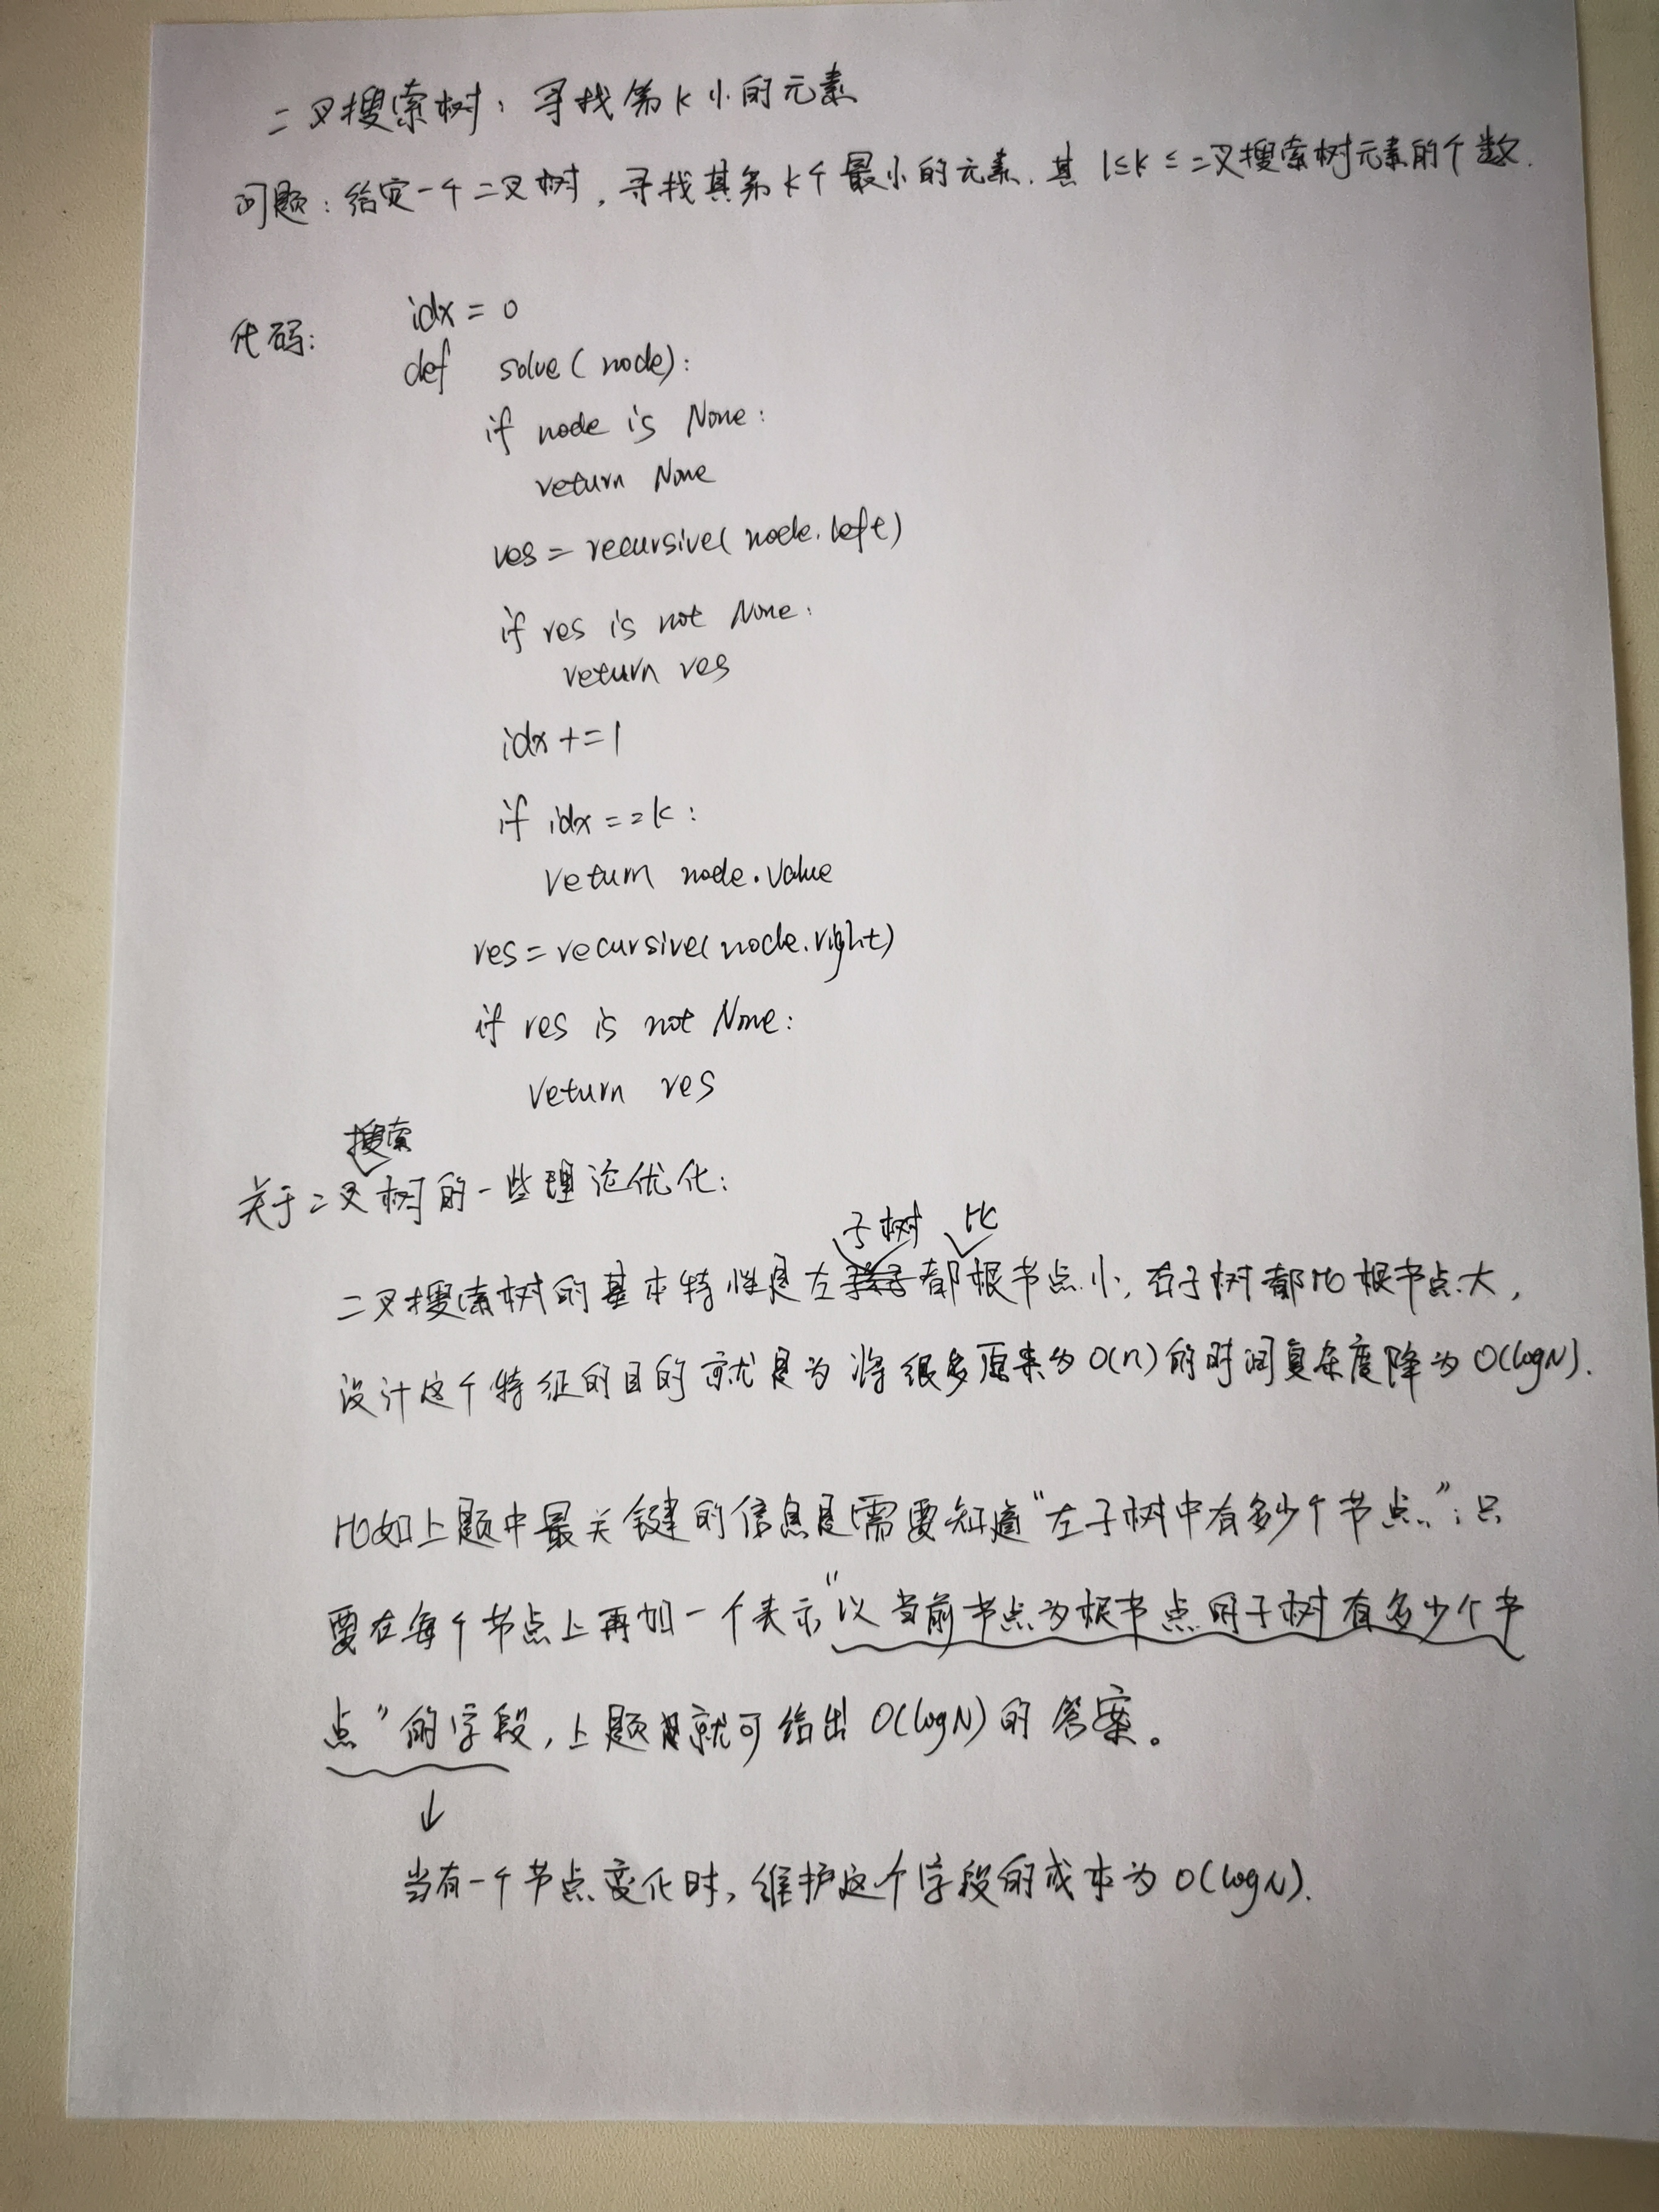 二叉搜索树：寻找第k小的元素
问题：给定一个二叉树，寻找其第k个最小的元素.其 1≤k≤二叉搜索树元素的个数.
代码：
idx = 0
def solve(node):
if node is None:
return None
res = recursive(node.left)
if res is not None:
return res
idx += 1
if idx == k:
return node.value
res = recursive(node.right)
if res is not None:
return res
关于二叉搜索树的一些理论优化：
二叉搜索树的基本特性是左子树都比根节点小,右子树都比根节点大,
设计这个特征的目的就是为将很多原来为O(n)的时间复杂度降为O(logN).
比如上题中最关键的信息是需要知道“左子树中有多少个节点”；只
要在每个节点上再加一个表示“以当前节点为根节点的子树有多少个节
点”的字段,上题就可给出O(logN)的答案。
↓
当有一个节点变化时,维护这个字段的成本为O(logN).